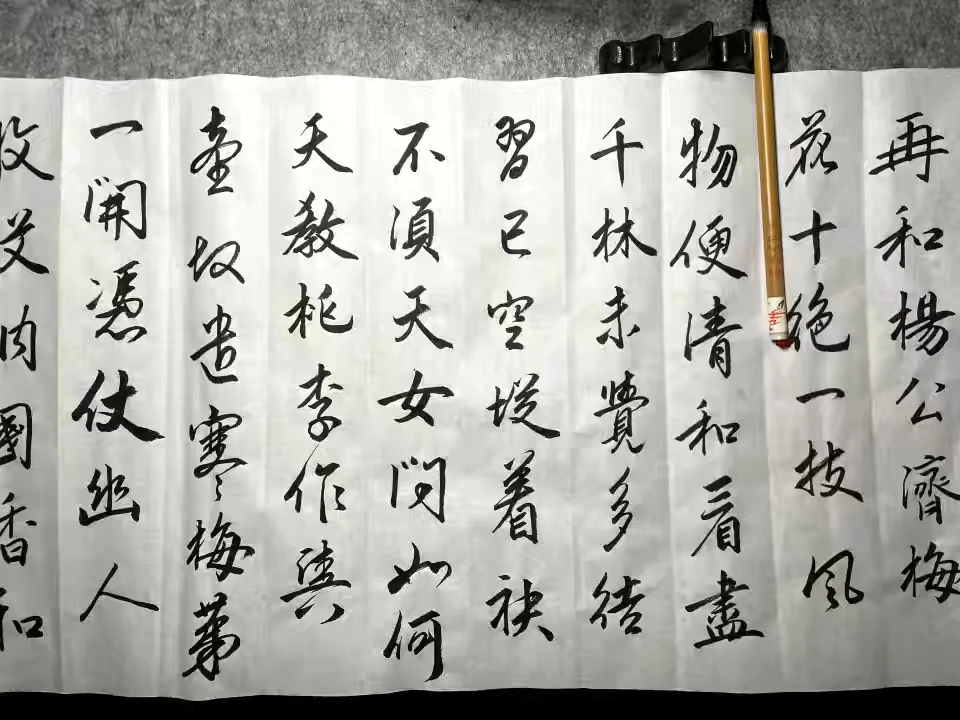 再和楊公濟梅
花十絕一枝風
物便清和看盡
千林未覺多結
習已空從着袂
不須天女問如何
天教桃李作輿
臺故遣寒梅第
一開憑仗幽人
收艾納國香和